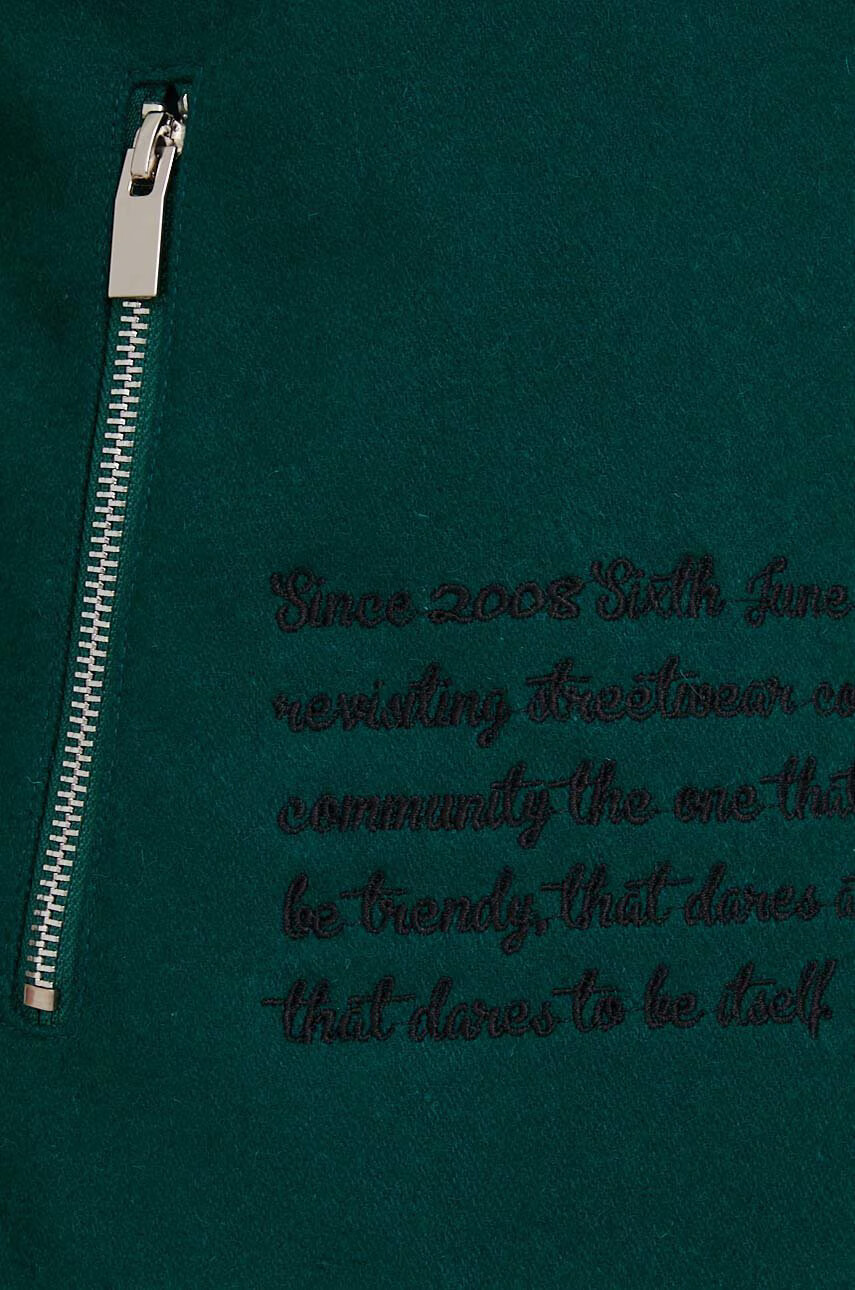 Since 2008 Sixth June
revisiting streetwear
community the one that
be trendy, that dares
that dares to be itself.